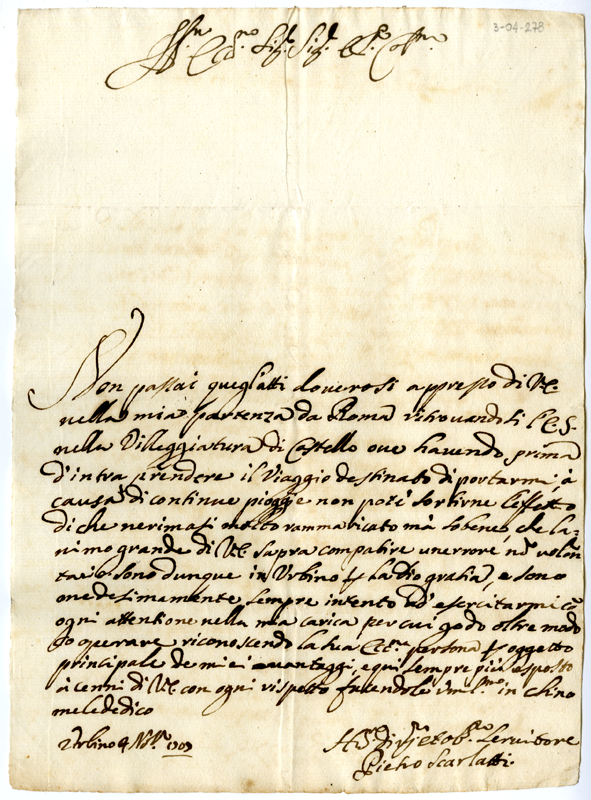 3-04-278
Ill.mo Ecc.mo Sig.r Sig.r
Non passai quegl'atti doverosi appresso di V.E.
nella mia partenza da Roma ritrovandosi l'E.S.
nella Villeggiatura di Castello ove havendo prima
d'intraprendere il Viaggio destinato di portarmi, à
causa di continue pioggie non potei sortirne l'effetto
di che ne rimasi molto rammaricato mà sò bene, che l'a-
nimo grande di V.E. saprà compatire un errore nō volon
tario sono dunque in Urbino la dio gratia, e sono
medesimamente sempre intento ad'esercitarmi cō
ogni attentione nella mia carica per cui godo oltre modo
operare riconoscendo la sua Ecc.ma persona oggetto
principale de miei avantaggi, e qui sempre più esposto
à cenni di V.E. con ogni rispetto facendole in chino
mele dedico
Urbino 9 1707
Servitore
Pietro Scarlatti.